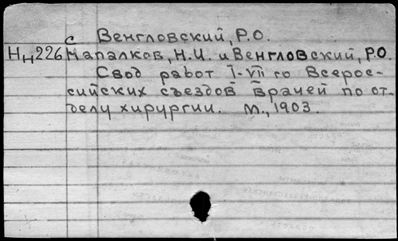 с Венгловский, Р.О.
Нц226 Напалков, Н.И. и Венгловский, Р.О.
Свод работ I-VII го Всерос-
сийских съездов врачей по от-
делу хирургии. М., 1903.